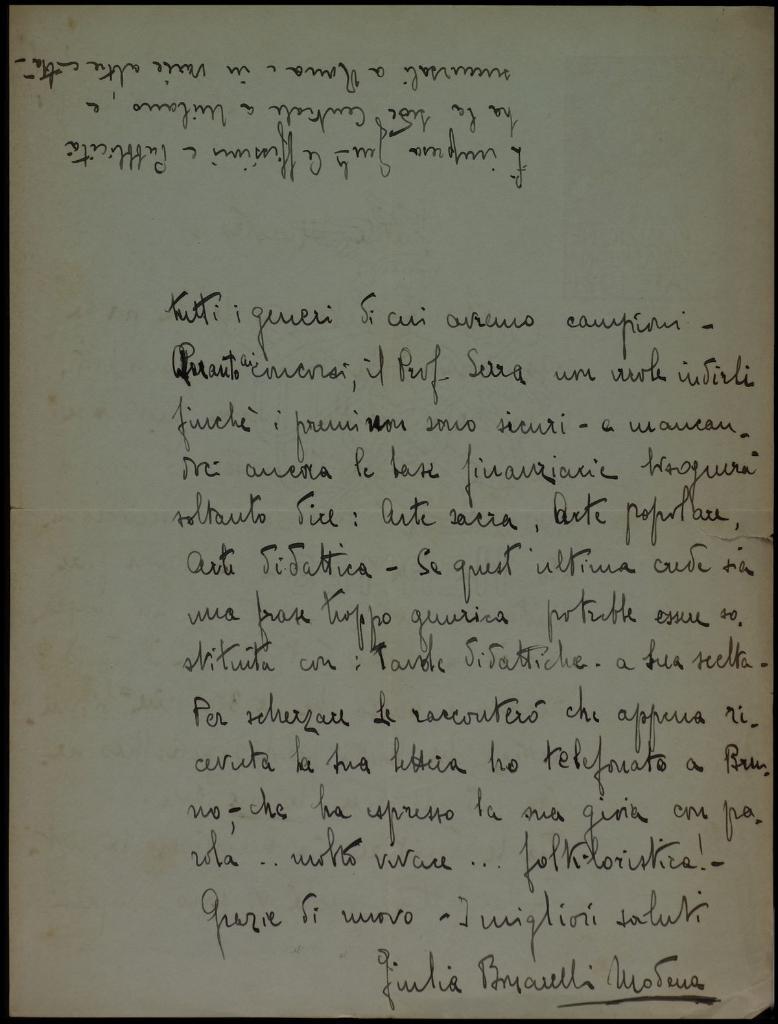 L'impresa Gen. Affissioni e Pubblicità
ha la sede Centrale a Milano, e
succursali a Roma e in varie altre città -
tutti i generi di cui avremo campioni -
Quanto ai concorsi, il Prof. Serra non vuole indirli
finchè i premi non sono sicuri - e mancan-
do ancora le base finanziarie bisognerà
soltanto dire: Arte sacra, Arte popolare,
Arte didattica - Se quest'ultima crede sia
una frase troppo generica potrebbe essere so-
stituita con: Tavole didattiche - a Sua scelta -
Per scherzare Le racconterò che appena ri-
cevuta la Sua lettera ho telefonato a Bru-
no -, che ha espresso la sua gioia con pa-
rola .. molto vivace ... folkloristica! -
Grazie di nuovo - I migliori saluti
Giulia Modena